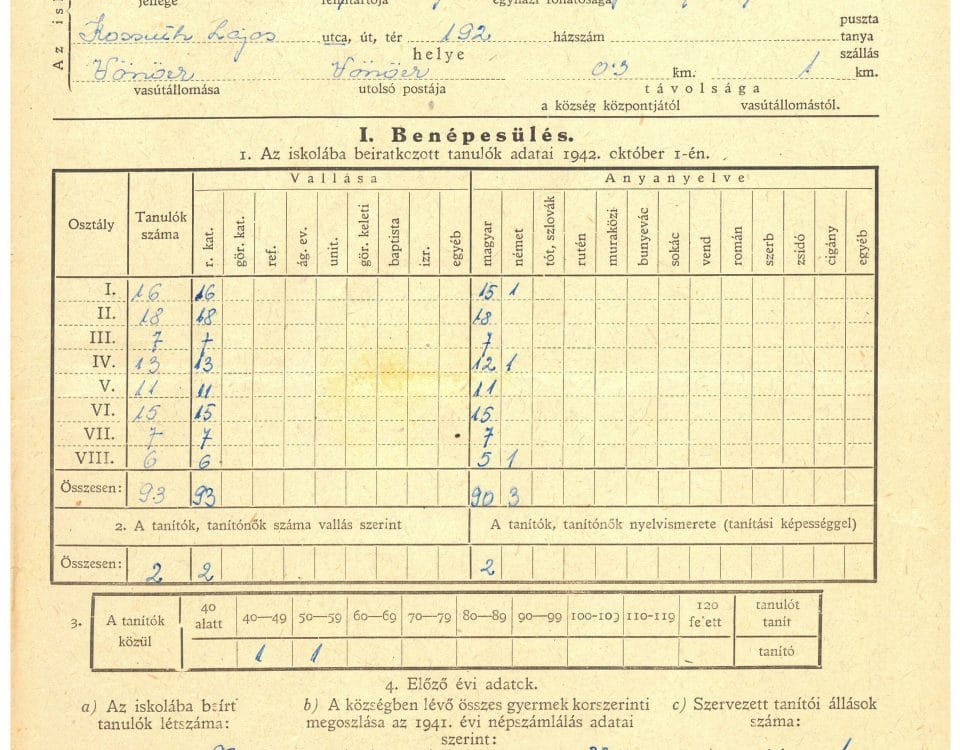 jellege fenntartója egyházi főhatósága
Az isk
Kossuth Lajos utca, út, tér 192 házszám puszta
tanya
helye szállás
Vönöer Vönöer 0·3 km. 1 km.
vasútállomása utolsó postája távolsága
a község központjától vasútállomástól.
I. Benépesülés.
1. Az iskolába beiratkozott tanulók adatai 1942. október 1-én.
Osztály Tanulók száma Vallása Anyanyelve
r. kat. gör. kat. ref. ág. ev. unit. gör. keleti baptista izr. egyéb magyar német tót, szlovák rutén muraközi bunyevác sokác vend román szerb zsidó cigány egyéb
I. 16 16 15 1
II. 18 18 18
III. 7 7 7
IV. 13 13 12 1
V. 11 11 11
VI. 15 15 15
VII. 7 7 7
VIII. 6 6 5 1
Összesen: 93 93 90 3
2. A tanítók, tanítónők száma vallás szerint A tanítók, tanítónők nyelvismerete (tanítási képességgel)
Összesen: 2 2 2
3. A tanítók közül 40 alatt 40—49 50—59 60—69 70—79 80—89 90—99 100-109 110-119 120 felett tanulót tanít
1 1 tanító
4. Előző évi adatok.
a) Az iskolába beírt b) A községben lévő összes gyermek korszerinti c) Szervezett tanítói állások
tanulók létszáma: megoszlása az 1941. évi népszámlálás adatai száma:
szerint: